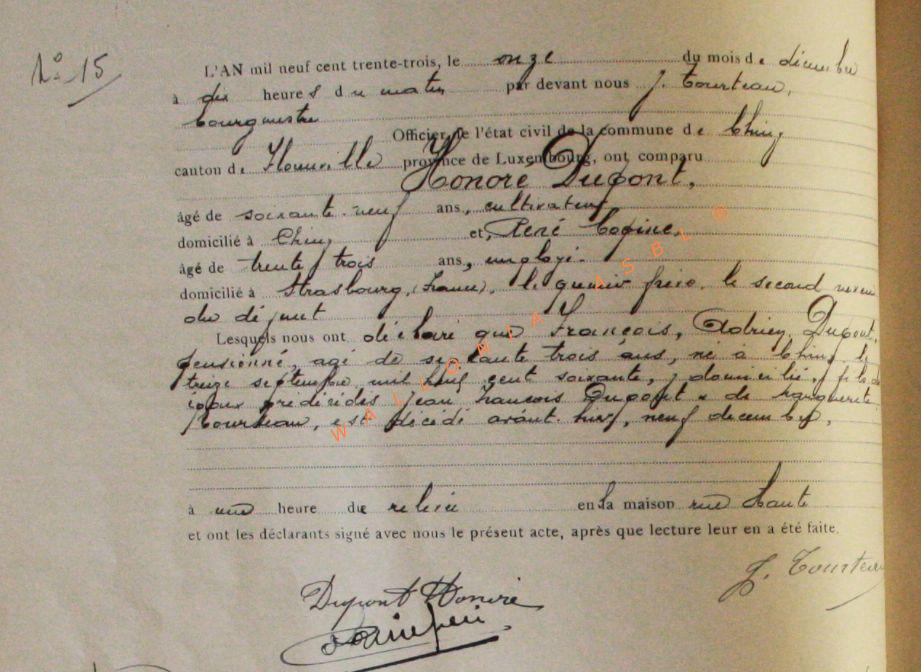 N° 15
L'AN mil neuf cent trente-trois, le onze du mois de décembre
à dix heures du matin par devant nous J. Tourteau,
bourgmestre
Officier de l'état civil de la commune de Chiny
canton de Florenville province de Luxembourg, ont comparu
Honoré Dupont,
âgé de soixante-neuf ans, cultivateur
domicilié à Chiny et, René
âgé de trente trois ans, employé.
domicilié à Strasbourg, (France), le premier frère, le second neveu
du défunt
Lesquels nous ont déclaré que François, Adrien, Dupont,
pensionné, âgé de septante trois ans, né à Chiny le
treize septembre mil huit cent soixante, y domicilié, fils des
époux prédécédés Jean François Dupont & de Marguerite
Tourteau, est décédé avant-hier, neuf décembre,
à une heure de relevée en la maison rue Haute
et ont les déclarants signé avec nous le présent acte, après que lecture leur en a été faite.
J. Tourteau
Dupont Honoré
WALLONIA ASBL ©